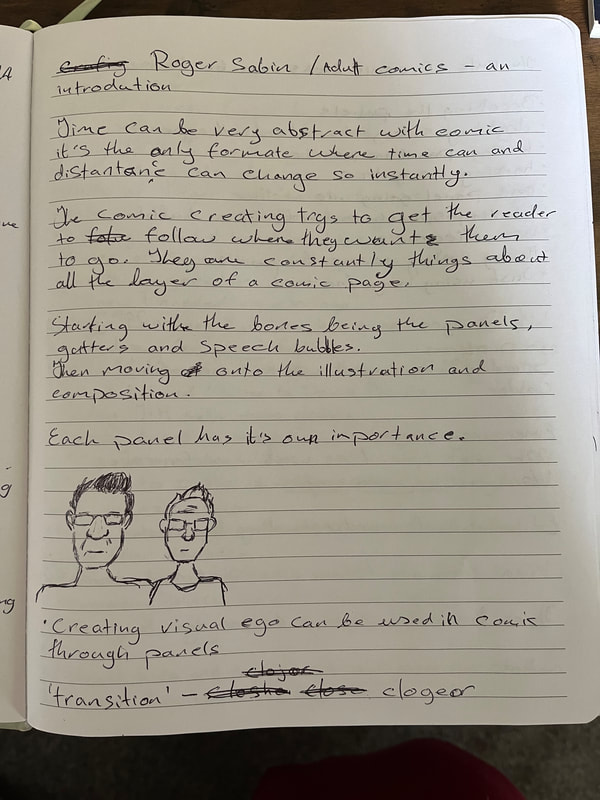 Crafig Roger Sabin / Adult comics - an
introdution
Time can be very abstract with comic
it's the only formate where time can and
distantane can change so instantly.
The comic creating trys to get the reader
to follow where they wants them
to go. They are constantly things about
all the layer of a comic page.
Starting withe the bones being the panels,
gutters and speech bubbles.
Then moving onto the illustration and
composition.
Each panel has it's own importance.
·Creating visual ego can be used in comic
through panels
clojor
'transition' - Closhe Close clogeor